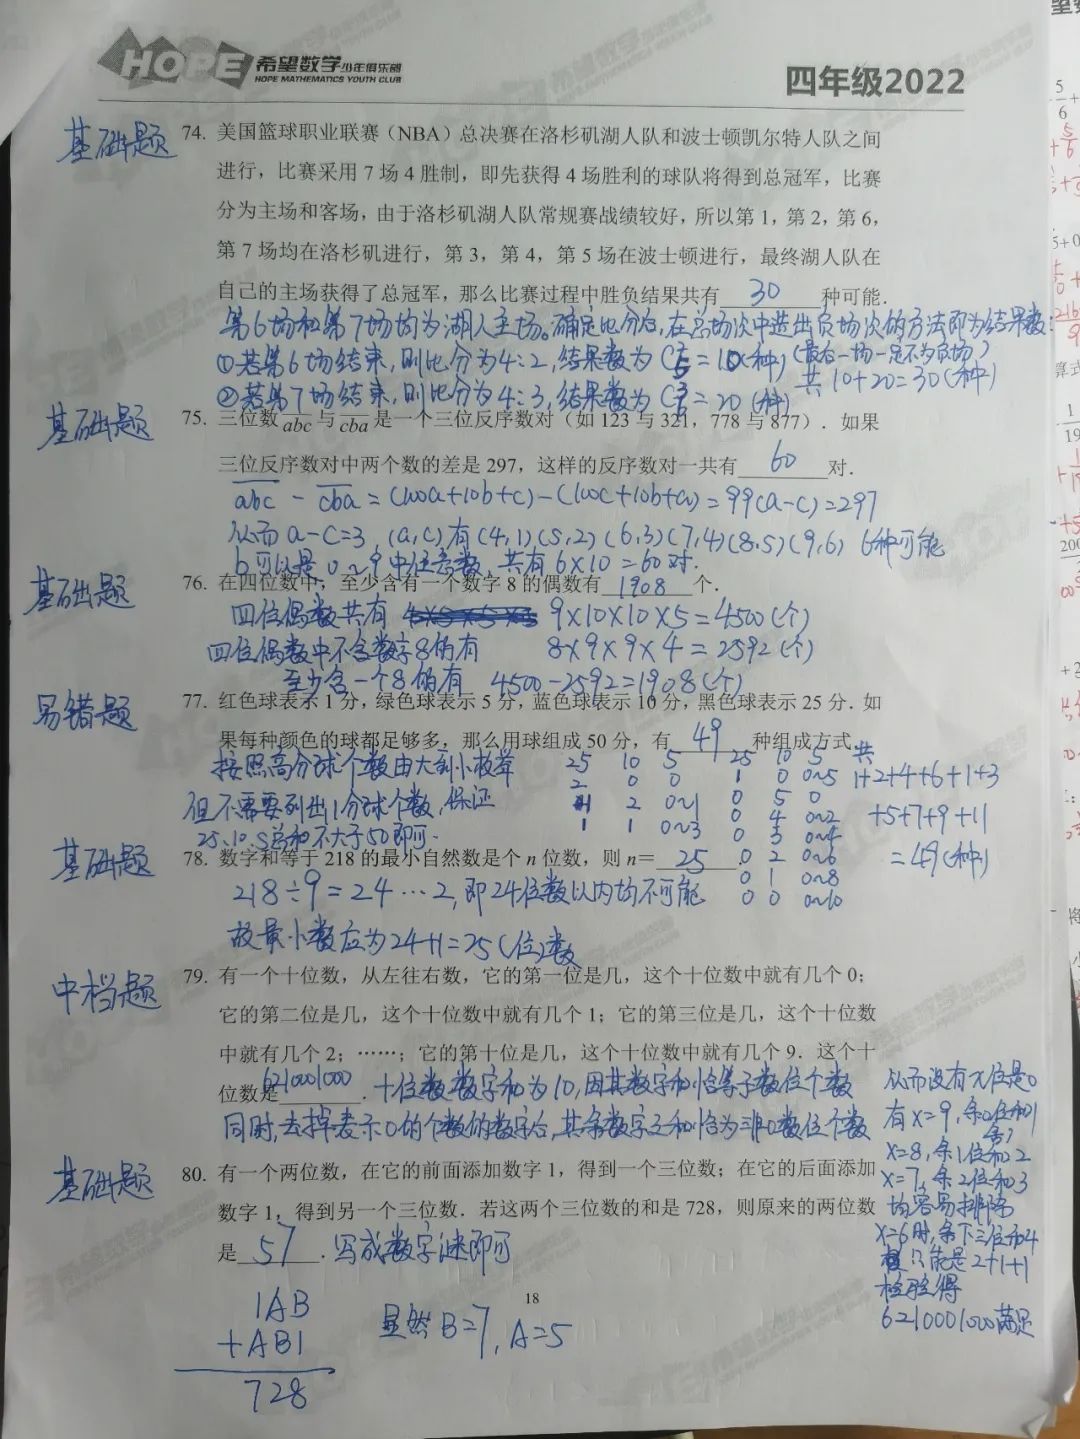 HOPE 希望数学少年俱乐部
HOPE MATHEMATICS YOUTH CLUB
四年级2022
基础题
74. 美国篮球职业联赛（NBA）总决赛在洛杉矶湖人队和波士顿凯尔特人队之间
进行，比赛采用 7 场 4 胜制，即先获得 4 场胜利的球队将得到总冠军，比赛
分为主场和客场，由于洛杉矶湖人队常规赛战绩较好，所以第 1，第 2，第 6，
第 7 场均在洛杉矶进行，第 3，第 4，第 5 场在波士顿进行，最终湖人队在
自己的主场获得了总冠军，那么比赛过程中胜负结果共有 30 种可能．
第6场和第7场均为湖人主场。确定比分后，在总场次中选出负场次的方法即为结果数
①若第6场结束，则比分为4:2，结果数为C²₅=10(种)(最后一场一定不为负场)
②若第7场结束，则比分为4:3，结果数为C³₆=20(种)
共10+20=30(种)
基础题
75. 三位数 abc 与 cba 是一个三位反序数对（如 123 与 321，778 与 877）．如果
三位反序数对中两个数的差是 297，这样的反序数对一共有 60 对．
abc - cba = (100a+10b+c)-(100c+10b+a)=99(a-c)=297
从而 a-c=3，(a,c)有(4,1)(5,2)(6,3)(7,4)(8,5)(9,6) 6种可能
b可以是0~9中任意数，共有6×10=60对.
基础题
76. 在四位数中，至少含有一个数字 8 的偶数有 1908 个．
四位偶数共有 9×10×10×5=4500(个)
四位偶数中不含数字8的有 8×9×9×4=2592(个)
至少含一个8的有 4500-2592=1908(个)
易错题
77. 红色球表示 1 分，绿色球表示 5 分，蓝色球表示 10 分，黑色球表示 25 分．如
果每种颜色的球都足够多，那么用球组成 50 分，有 49 种组成方式．
按照高分球个数由大到小枚举
但不需要列出1分球个数，保证
25、10、5总和不大于50即可.
25 10 5 25 10 5 共
2 0 0 1 0 0~5 1+2+4+6+1+3
1 2 0~1 0 5 0
1 1 0~3 0 4 0~2 +5+7+9+11
0 3 0~4
0 2 0~6 =49(种)
0 1 0~8
0 0 0~10
基础题
78. 数字和等于 218 的最小自然数是个 n 位数，则 n＝ 25 ．
218÷9=24…2，即24位数以内均不可能
故最小数应为24+1=25(位)数
中档题
79. 有一个十位数，从左往右数，它的第一位是几，这个十位数中就有几个 0；
它的第二位是几，这个十位数中就有几个 1；它的第三位是几，这个十位数
中就有几个 2；……；它的第十位是几，这个十位数中就有几个 9．这个十
位数是 6210001000 ．
十位数数字和为10，因其数字和恰等于数位个数
同时，去掉表示0的个数的数字后，其余数字之和恰为非0数位个数
从而设有x位是0
有x=9，余0位和1
x=8，余1位和2
x=7，余2位和3
均容易排除
x=6时，余下三位和4
只能是2+1+1
检验得
6210001000满足
基础题
80. 有一个两位数，在它的前面添加数字 1，得到一个三位数；在它的后面添加
数字 1，得到另一个三位数．若这两个三位数的和是 728，则原来的两位数
是 57 ．写成数字谜即可
1AB
+AB1
728
显然B=7，A=5
18